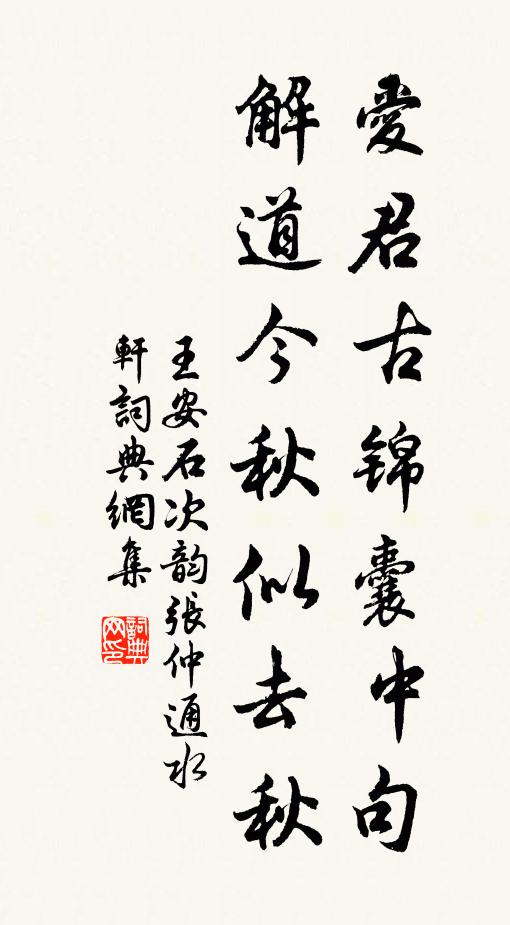 愛君古錦囊中句
解道今秋似去秋
王安石次韵張仲通水
軒詞典網集
詞典
网印